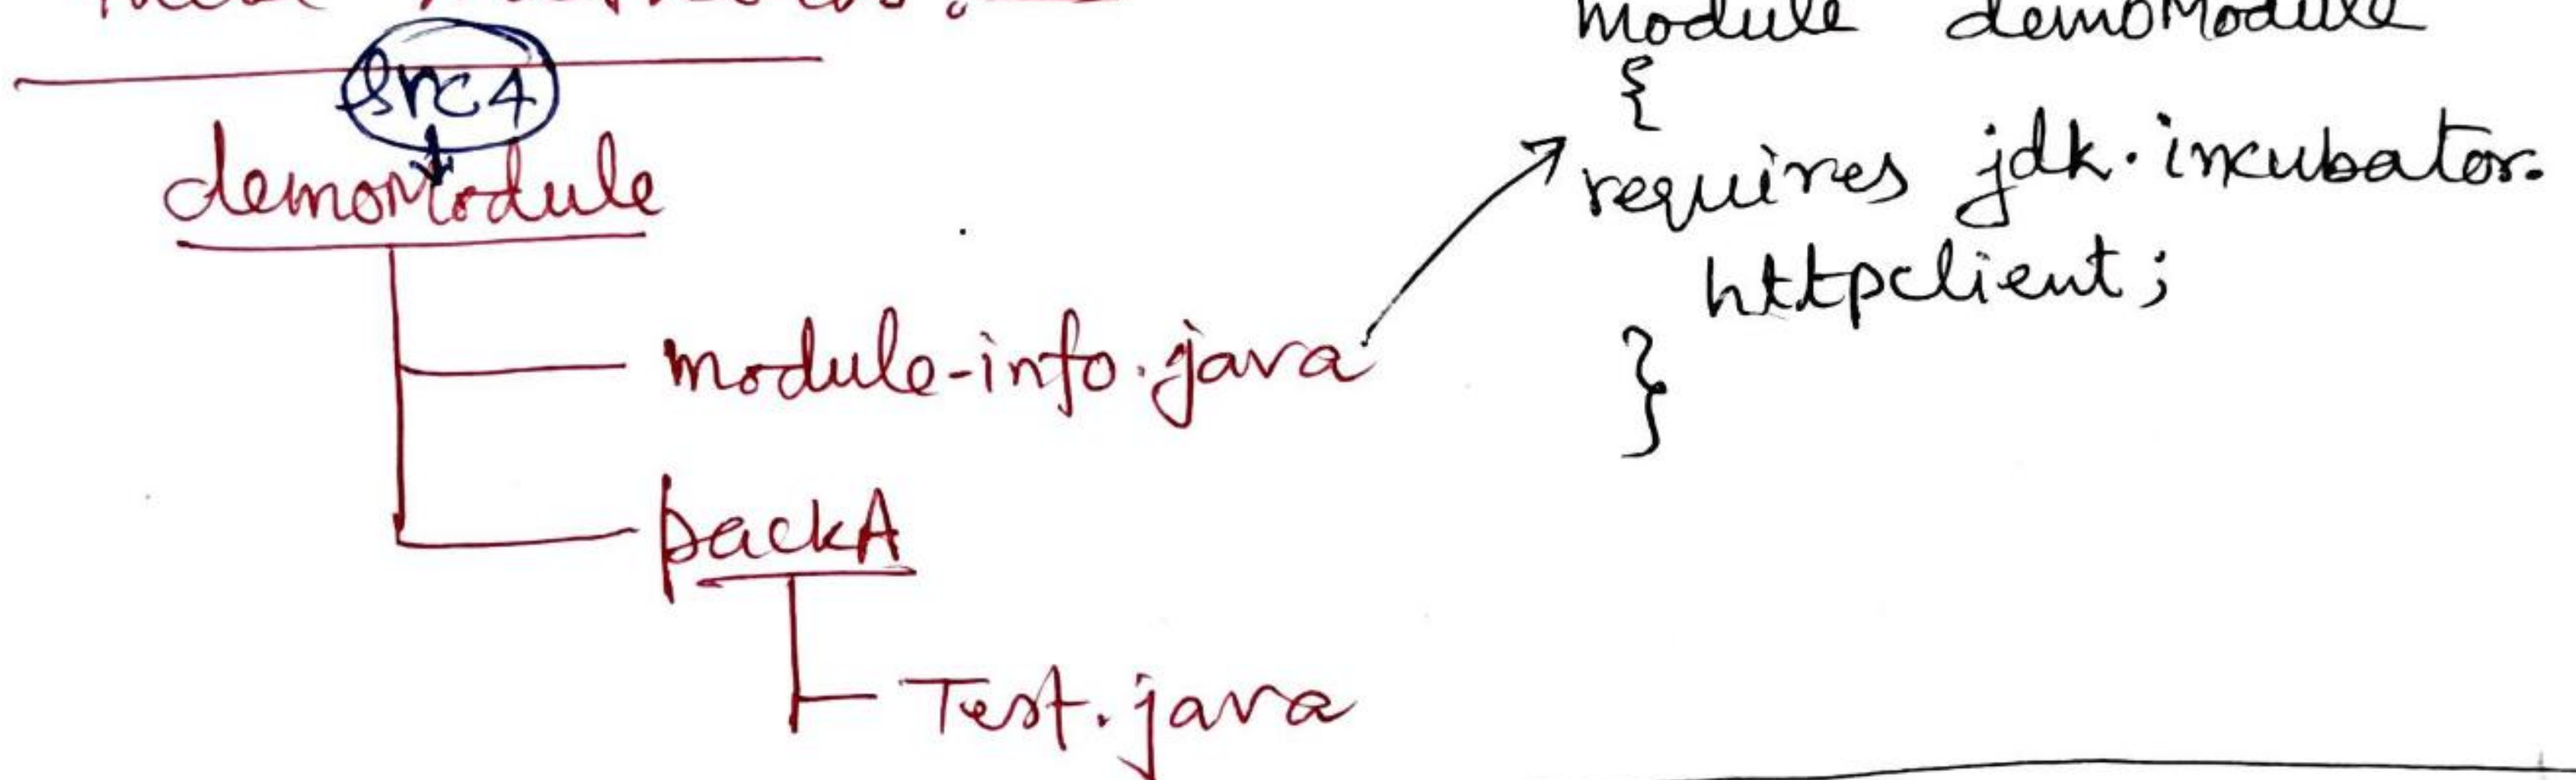 src4
demoModule
module-info.java
packA
Test.java
module demoModule
{
requires jdk.incubator.
httpclient;
}